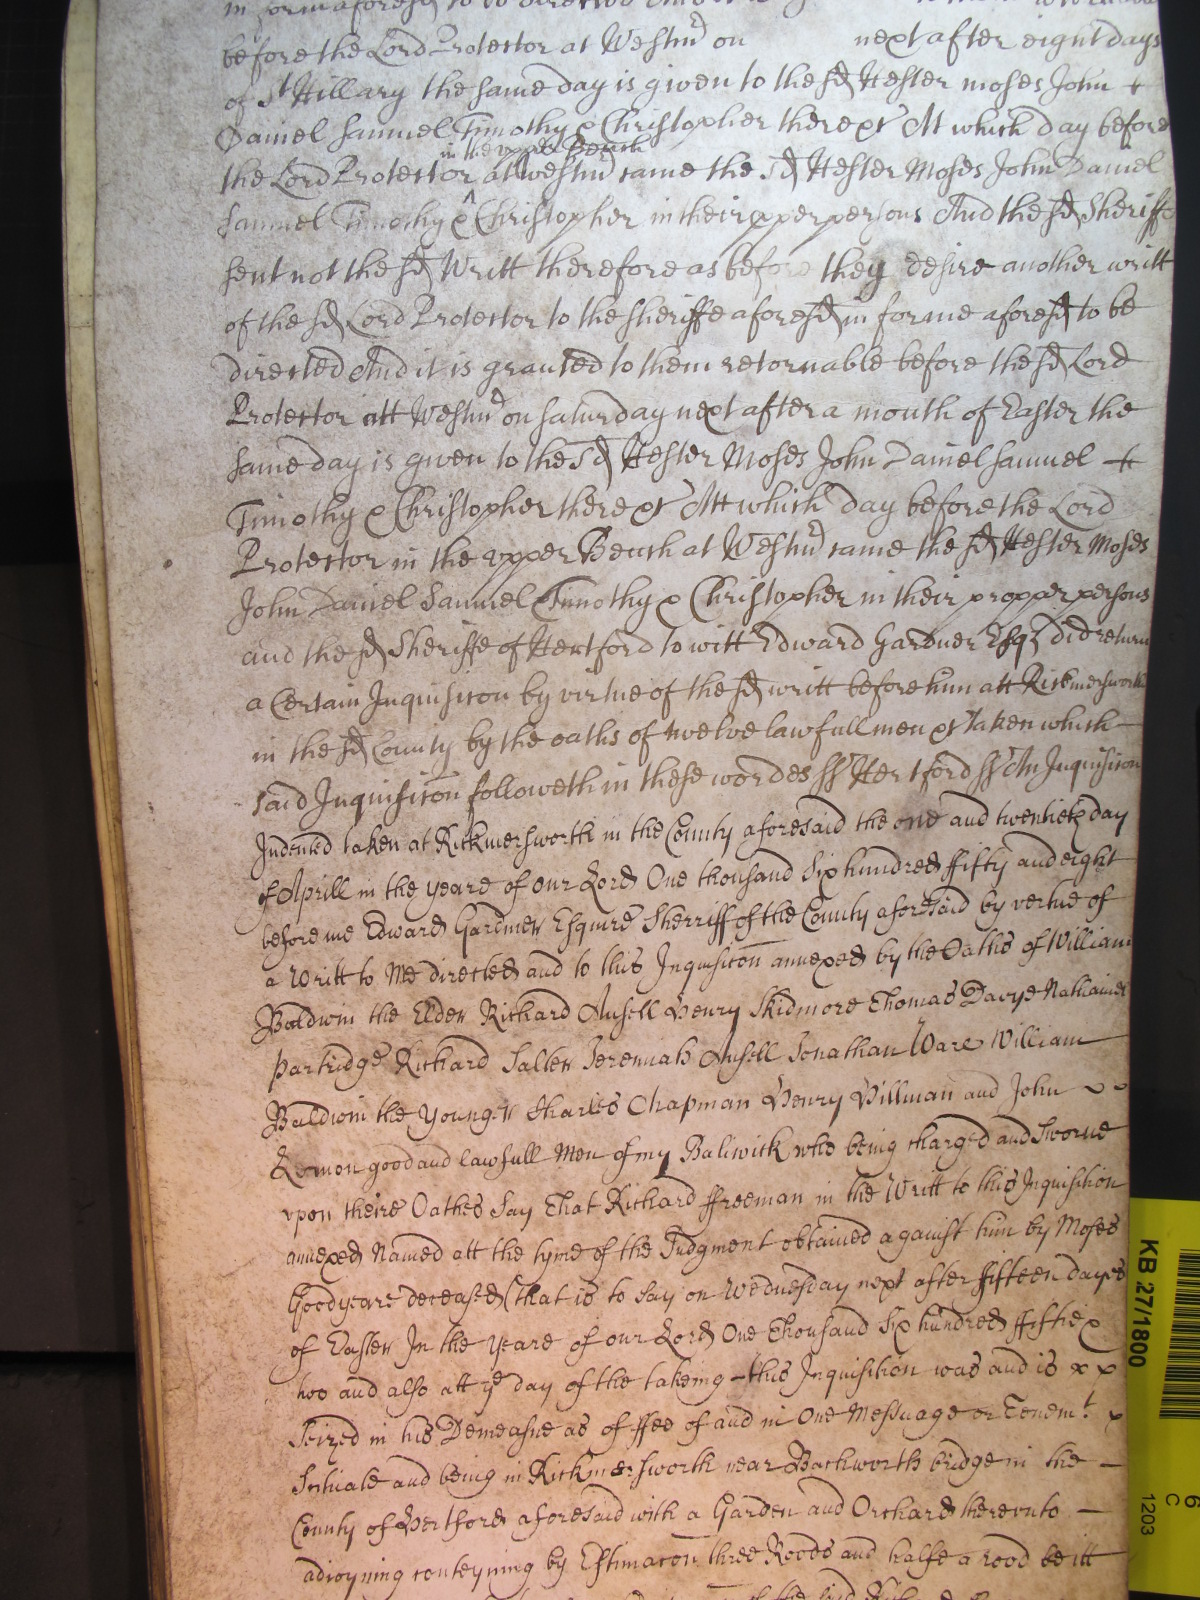 in forme aforesd to be directed
before the Lord Protector at Westmr on next after eight days
of St Hillary the same day is given to the sd Hester Moses John +
Daniel Samuel Timothy & Christopher there &c Att which day before
in the upper Bench
the Lord Protector at Westmr came the sd Hester Moses John Daniel
Samuel Timothy & Christopher in their proper persons And the sd Sheriffe
sent not the sd Writt therefore as before they desire another writt
of the sd Lord Protector to the sheriffe aforesd in forme aforesd to be
directed And it is granted to them retornable before the sd Lord
Protector att Westmr on Saturday next after a month of Easter the
same day is given to the sd Hester Moses John Daniel Samuel +
Timothy & Christopher there &c Att which day before the Lord
Protector in the upper Bench at Westmr came the sd Hester Moses
John Daniel Samuel Timothy & Christopher in their proper persons
and the sd Sheriffe of Hertford to witt Edward Gardner Esqr did return
a Certain Inquisicon by virtue of the sd writt before him att Rickmersworth
in the sd County by the oaths of twelve lawfull men &c taken which
said Inquisicon followeth in these wordes ss Hertford ss An Inquisicon
Indented taken at Rickmersworth in the County aforesaid the one and twentieth day
of Aprill in the yeare of our Lord One thousand Six hundred fifty and eight
before me Edward Gardiner Esquire Sherriff of the County aforesaid by vertue of
a Writt to Me directed and to this Inquisicon annexed by the Oathes of William
Baldwin the Elder Richard Ansell Henry Skidmore Thomas Davye Nathaniel
Partridge Richard Salter Jeremiah Ansell Jonathan Ware William
Baldwin the younger Charles Chapman Henry Hillman and John
Lemon good and lawfull Men of my Baliwick who being charged and Sworne
upon theire Oathes Say That Richard ffreeman in the Writt to this Inquisition
annexed Named att the tyme of the Judgment obtained against him by Moses
Goodyeare deceased (that is to say on Wednesday next after fifteen dayes
of Easter In the yeare of our Lord One Thousand Six hundred ffiftie &
two and also att ye day of the takeing this Inquisition was and is x x
Seized in his Demeasne as of ffee of and in One Messuage or Tenemt x
Scituate and being in Rickmersworth near Batchworth bridge in the
County of Hertford aforesaid with a Garden and Orchard thereunto
adioyning conteyning by Estimacon three Roods and halfe a rood be itt
KB 27/1800
6
C
1203